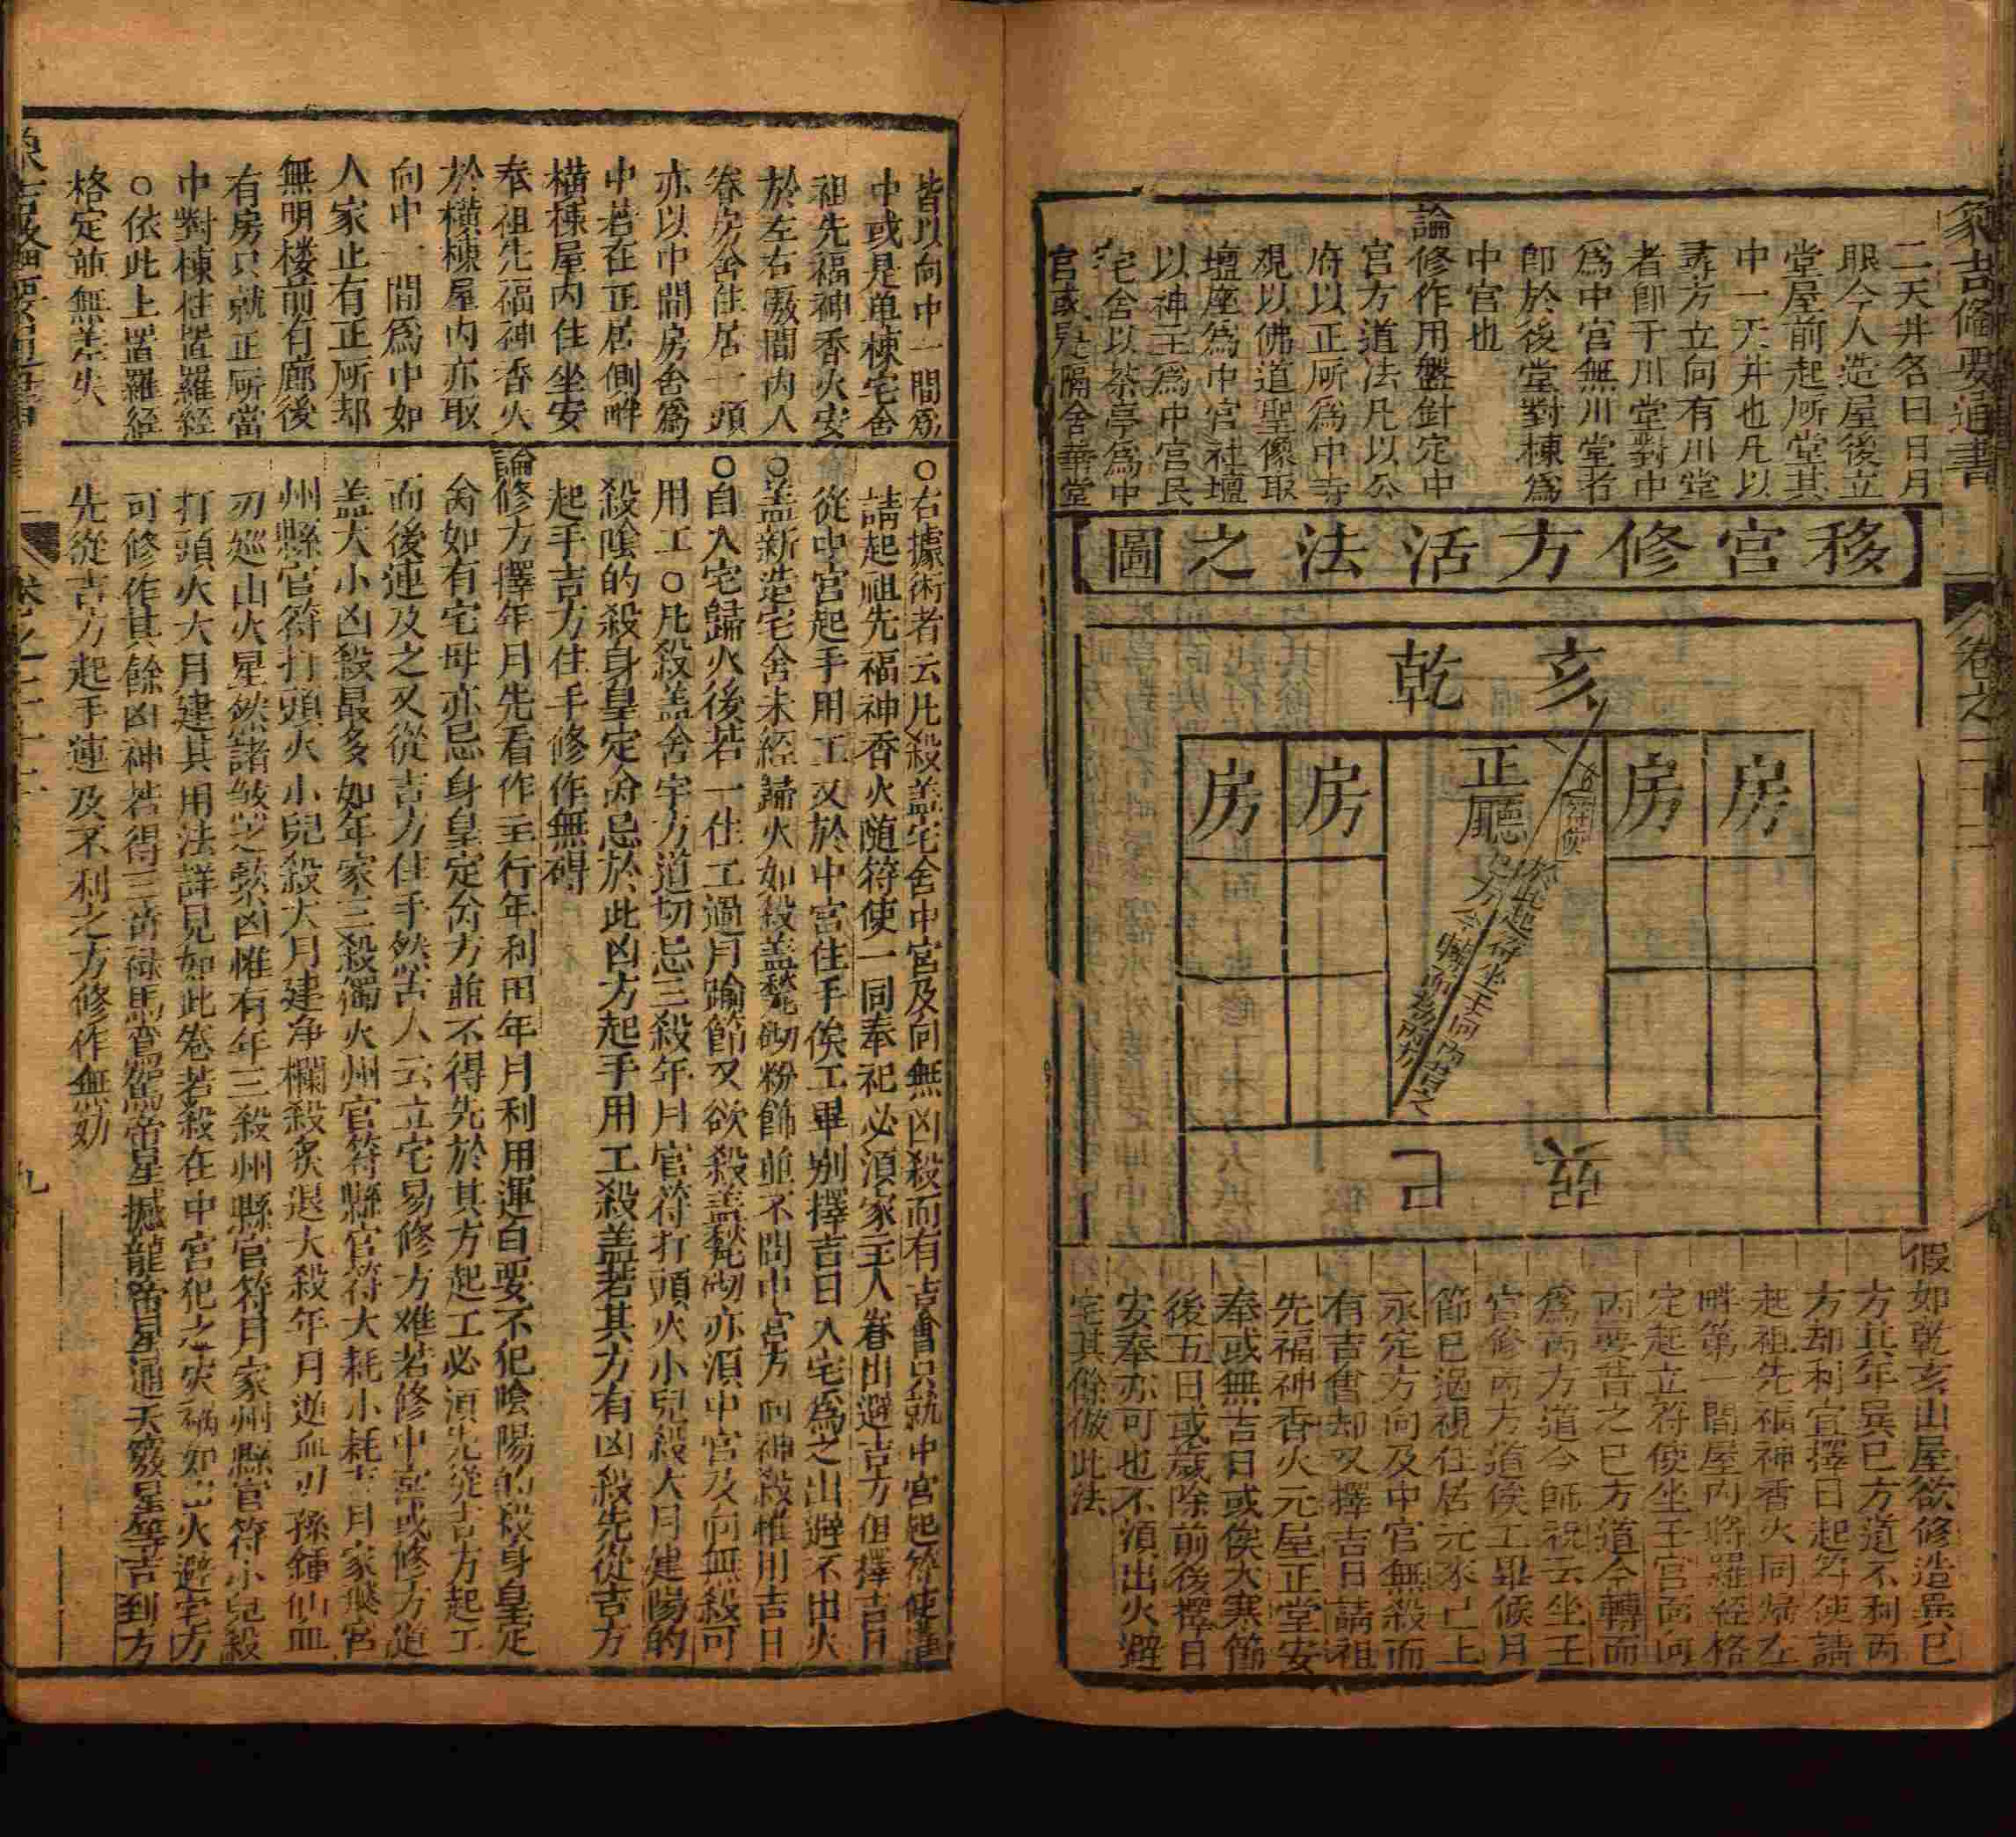 象吉備要通書
卷之二十二
二天井各曰日月
眼今人造屋後立
堂屋前起㕔堂其
中一天井也凡以
尋方立向有川堂
者即于川堂對中
爲中宮無川堂者
即於後堂對棟爲
中宮也
論修作用盤針定中
宮方道法凡以公
府以正㕔爲中寺
觀以佛道聖像取
壇座爲中宮社壇
以神主爲中宮民
宅舍以茶亭爲中
宮或是隔舍華堂
移宮修方活法之圖
亥
乾
房
房
正廳
房
房
符使
巽
巳
假如乾亥山屋欲修造巽巳
方其年巽巳方道不利丙
方却利宜擇日起符使請
起祖先福神香火同歸左
畔第一間屋內將羅經格
定起立符使坐壬宮面向
丙要昔之巳方道今轉而
爲丙方道今師祝云坐壬
宮修丙方道俟工畢候月
節已過視住居元來已上
永定方向及中宮無殺而
有吉會却又擇吉日請祖
先福神香火元屋正堂安
奉或無吉日或俟大寒節
後五日或歲除前後擇日
安奉亦可也不須出火避
宅其餘倣此法
皆以向中一間爲
中或是单棟宅舍
祖先福神香火安
於左右厫間內人
眷房舍住居一頭
亦以中間房舍爲
中若在正居側畔
橫棟屋內住坐安
奉祖先福神香火
於橫棟屋內亦取
向中一間爲中如
人家止有正㕔却
無明楼前有廊後
有房只就正㕔當
中對棟柱置羅經
○依此上置羅經
格定並無差失
○右據術者云凡殺盖宅舍中宮及向無凶殺而有吉會只就中宮起符使
請起祖先福神香火随符使一同奉祀必須家主人眷出避吉方但擇吉日
從中宮起手用工又於中宮住手俟工畢别擇吉日入宅爲之出避不出火
○盖新造宅舍未經歸火如殺盖甃砌粉飾並不問中宮方向神殺惟用吉日
○自入宅歸火後若一住工過月踰節又欲殺盖甃砌亦須中宮及向無殺可
用工○凡殺盖舍宇方道切忌三殺年月官符打頭火小兒殺大月建陽的
殺陰的殺身皇定命忌於此凶方起手用工殺盖若其方有凶殺先從吉方
起手吉方住手修作無碍
論修方擇年月先看作主行年利田年月利用運白要不犯陰陽的殺身皇定
命如有宅母亦忌身皇定命方並不得先於其方起工必須先從吉方起工
而後連及之又從吉方住手然古人云立宅易修方难若修中宮或修方道
盖大小凶殺最多如年家三殺獨火州官符縣官符大耗小耗月家飛宮
州縣官符打頭火小兒殺大月建净欄殺炙退大殺年月逆血刃孫鍾仙血
刃廵山火星然諸皴之緊凶惟有年三殺州縣官符月家州縣官符小兒殺
打頭火大月建其用法詳見如此卷若殺在中宮犯之災禍如出火避宅方
可修作其餘凶神若得三竒禄馬貴駕帝星撼龍帝星通天竅星等吉到方
先從吉方起手連及不利之方修作無妨
九